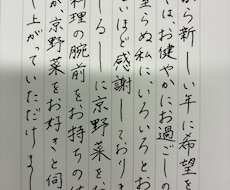 から新しい年に希望を
は、お健やかにお過ごしの
足らぬ私に、いろいろとお
ないほど感謝しておりま
しるしに京野菜をお
料理の腕前をお持ちの
が京野菜をお好きと伺
し上がっていただけま